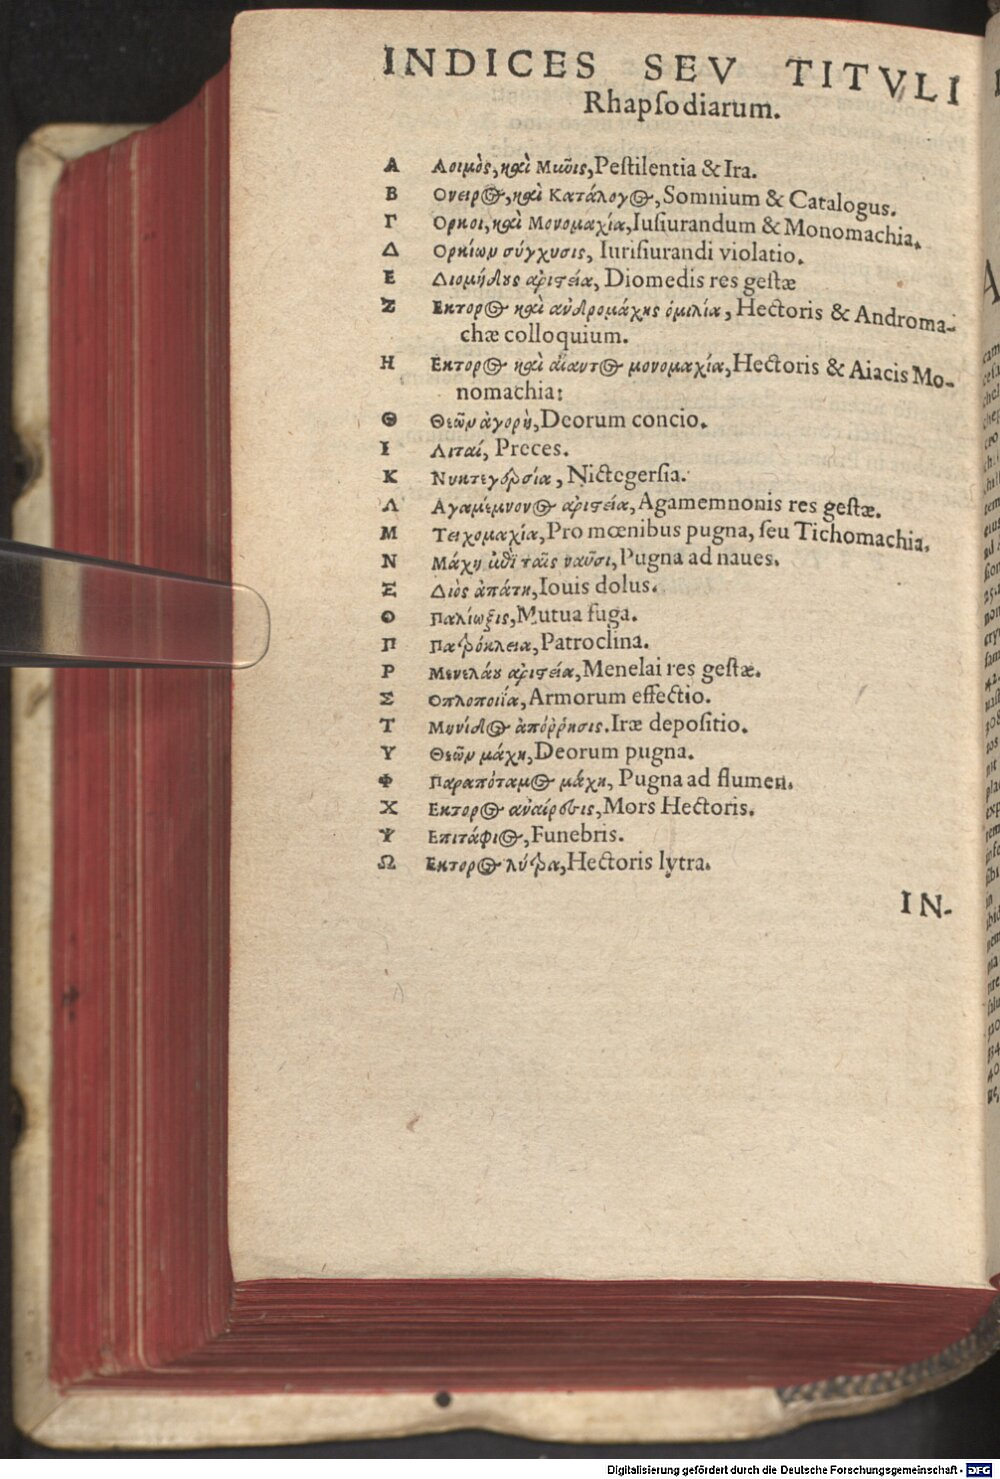 INDICES SEV TITVLI
Rhapſodiarum.
Α Λοιμὸς, καὶ Μῆνις, Peſtilentia & Ira.
Β Ονειρος, καὶ Κατάλογος, Somnium & Catalogus.
Γ Ορκοι, καὶ Μονομαχία, Iuſiurandum & Monomachia.
Δ Ορκίων σύγχυσις, Iurifiurandi violatio.
Ε Διομήδους ἀριστεία, Diomedis res geſtæ
Ζ Εκτορος καὶ ἀνδρομάχης ὁμιλία, Hectoris & Androma-
chæ colloquium.
Η Εκτορος καὶ αἴαντος μονομαχία, Hectoris & Aiacis Mo-
nomachia:
Θ Θεῶν ἀγορὴ, Deorum concio.
Ι Λιταί, Preces.
Κ Νυκτεγερσία, Nictegerſia.
Λ Αγαμέμνονος ἀριστεία, Agamemnonis res geſtæ.
Μ Τειχομαχία, Pro mœnibus pugna, ſeu Tichomachia.
Ν Μάχη ἐπὶ ταῖς ναῦσι, Pugna ad naues.
Ξ Διὸς ἀπάτη, Iouis dolus.
Ο Παλίωξις, Mutua fuga.
Π Πατρόκλεια, Patroclina.
Ρ Μενελάου ἀριστεία, Menelai res geſtæ.
Σ Οπλοποιΐα, Armorum effectio.
Τ Μηνίδος ἀπόῤῥησις. Iræ depoſitio.
Υ Θεῶν μάχη, Deorum pugna.
Φ Παραπόταμος μάχη, Pugna ad flumen.
Χ Εκτορος ἀναίρεσις, Mors Hectoris.
Ψ Επιτάφιος, Funebris.
Ω Εκτορος λύτρα, Hectoris lytra.
IN-
Digitalisierung gefördert durch die Deutsche Forschungsgemeinschaft - DFG